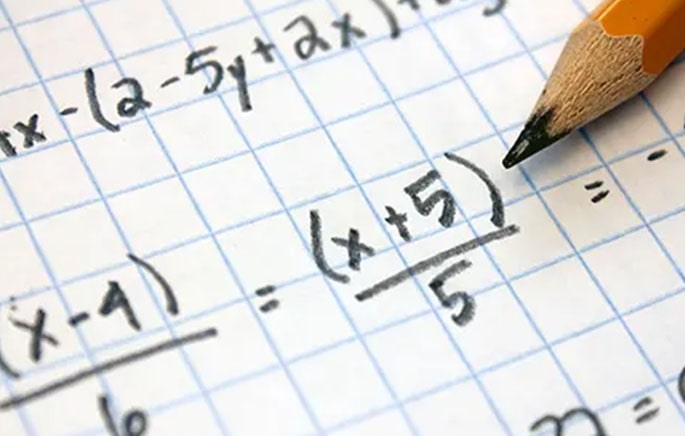 x-(2-5y+2x)+
(x-4)/6 = (x+5)/5 = -
=